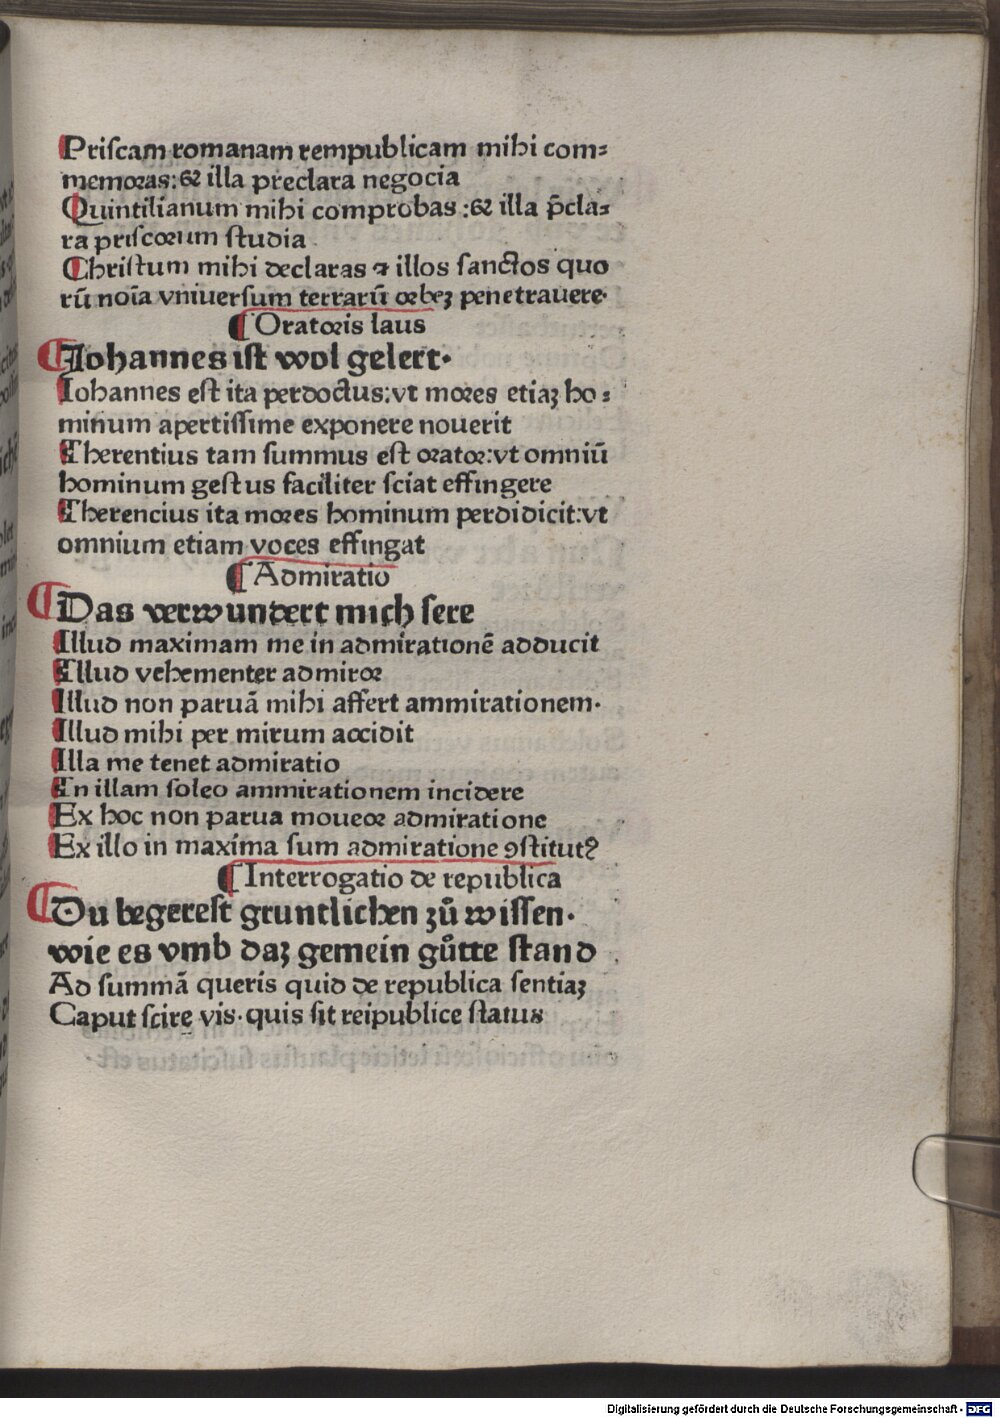 Priſcam romanam rempublicam mihi com⸗
memoꝛas:⁊ illa preclara negocia
Quintilianum mihi comprobas :⁊ illa p̄cla⸗
ra priſcoꝛum ſtudia
Chriſtum mihi declaras ⁊ illos ſanctos quo
rū noīa vniuerſum terrarū oꝛbeꝫ penetrauere·
¶ Oratoꝛis laus
¶ Johannes iſt wol gelert·
Iohannes eſt ita perdoctus:vt moꝛes etiaꝫ ho⸗
minum apertiſſime exponere nouerit
Therentius tam ſummus eſt oꝛatoꝛ:vt omniū
hominum geſtus faciliter ſciat effingere
Therencius ita moꝛes hominum perdidicit:vt
omnium etiam voces effingat
¶ Admiratio
¶ Das verwundert mich ſere
Illud maximam me in admirationē adducit
Illud vehementer admiroꝛ
Illud non paruā mihi affert ammirationem·
Illud mihi per mirum accidit
Illa me tenet admiratio
In illam ſoleo ammirationem incidere
Ex hoc non parua moueoꝛ admiratione
Ex illo in maxima ſum admiratione ꝯſtitutꝰ
¶ Interrogatio de republica
¶ Du begereſt gruntlichen zů wiſſen·
wie es vmb daꝫ gemein gůtte ſtand
Ad ſummā queris quid de republica ſentiaꝫ
Caput ſcire vis·quis ſit reipublice ſtatus
Digitalisierung gefördert durch die Deutsche Forschungsgemeinschaft - DFG